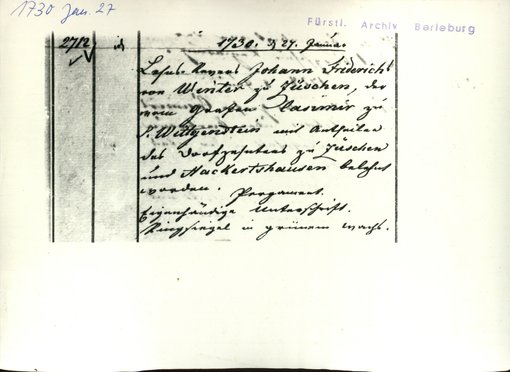 1730 Jan. 27
Fürstl. Archiv Berleburg
2712
1730. d 27. Januar
Lehns-Revers Johann Friderich's
von Winter zu Züschen, der
vom Grafen Casimir zu
S. Wittgenstein mit Antheilen
des Dorfzehntens zu Züschen
und Hackertshausen belehnt
worden. Pergament.
Eigenhändige Unterschrift.
Ringsiegel in grünem Wachs.